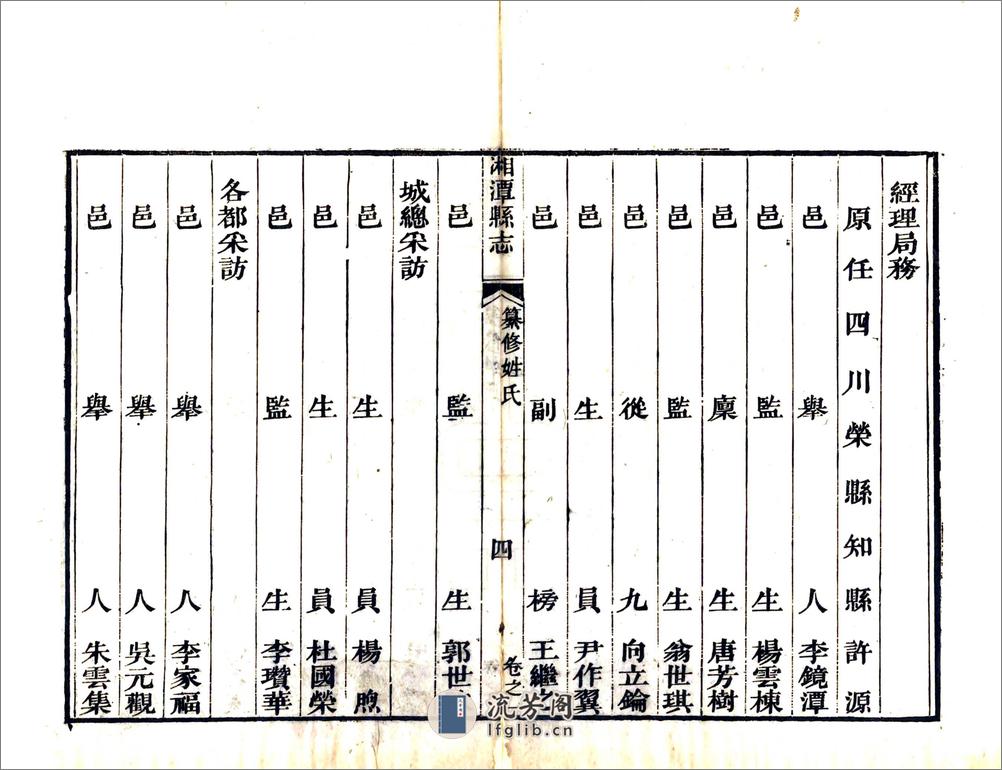 經理局務
原任四川榮縣知縣許源
邑舉人李鏡潭
邑監生楊雲棟
邑廩生唐芳樹
邑監生翁世琪
邑從九向立鑰
邑生員尹作翼
邑副榜王繼之
湘潭縣志
纂修姓氏
四
卷之
邑監生郭世
城總采訪
邑生員楊煦
邑生員杜國榮
邑監生李瓚華
各都采訪
邑舉人李家福
邑舉人吳元觀
邑舉人朱雲集
流芳阁
lfglib.cn